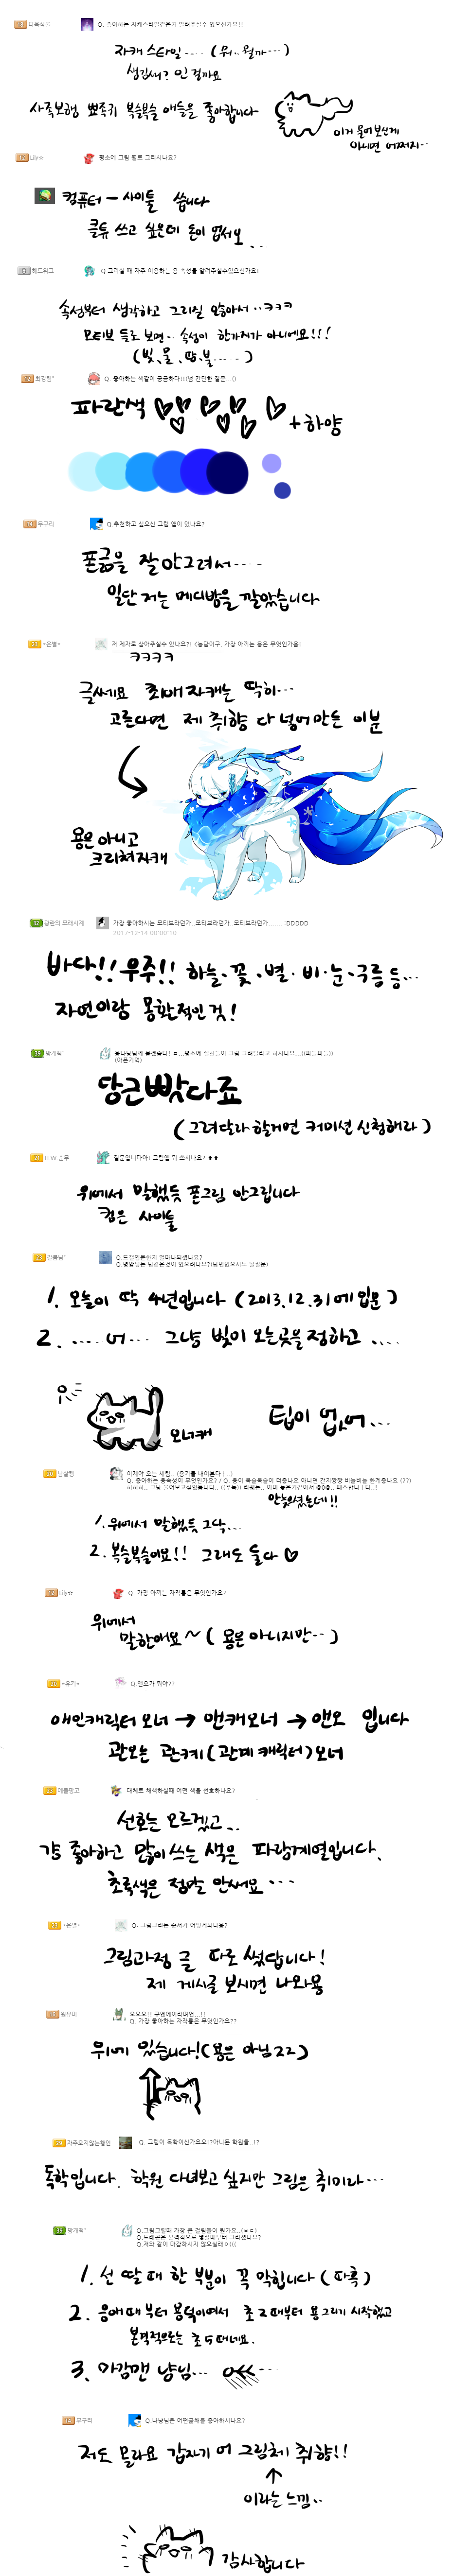 다육식물 Q. 좋아하는 자캐스타일같은거 알려주실수 있으신가요!!
자캐 스타일.... (뭐.. 뭘까...)
생김새? 인 걸까요
사족보행 뾰족귀 복슬복슬 애들을 좋아합니다
이거 물어보신게
아니면 어쩌지..
Lily☆ 평소에 그림 뭘로 그리시나요?
컴퓨터 - 사이툴 씁니다
클튜 쓰고 싶은데 돈이 없서요...
헤드위그 Q 그리실 때 자주 이용하는 용 속성을 알려주실수있으신가요!
속성부터 생각하고 그리질 않아서..ㅋㅋㅋ
모티브 들로 보면.. 속성이 한가지가 아니에요!!!
(빛、물、땅、불.....)
Q. 좋아하는 색깔이 궁금하다!!(넘 간단한 질문...())
파란색 +하양
무구리 Q.추천하고 싶으신 그림 앱이 있나요?
폰긂을 잘 안그려서....
일단 저는 메디방을 깔았습니다
*은별* 저 제자로 삼아주실수 있나요?! <농담이구, 가장 아끼는 용은 무엇인가용!
ㅋㅋㅋㅋ
글쎄요 최애자캐는 딱히...
고른다면 제 취향 다 넣어만든 이분
용은 아니고
크리쳐자캐
32 파란의 모래시계 가장 좋아하시는 모티브라던가..모티브라던가..모티브라던가...... :DDDDD
2017-12-14 00:00:10
바다!! 우주!! 하늘、꽃、별·비·눈·구름 등...
자연이랑 몽환적인것!
망개떡* 용나낭님께 묻겠습다! =...평소에 실친들이 그림 그려달라고 하시나요...((파들파들))
(아픈기억)
당근빠따죠
(그려달라 할거면 커미션 신청해라)
H.W.순무 질문입니다아! 그림앱 뭐 쓰시나요? ㅎㅎ
위에서 말했듯 폰그림 안그립니다
컴은 사이툴
갈봄님* Q.드컬입문한지 얼마나되셨나요?
Q.명암넣는 팁같은것이 있으려나요?(답변없으셔도 될질문)
1. 오늘이 딱 4년입니다 (2013.12.31에 입문)
2. .... 어... 그냥 빛이 오는곳을 정하고 ....
오너캐
팁이 없어...
날설쩡 이제야 오는 세림.. (용기를 내어본다ㅏ..)
Q. 좋아하는 용속성이 무엇인가요? / Q. 용이 복슬복슬이 더좋나요 아니면 간지짱짱 비늘비늘 한게좋나요 (??)
히히히.. 그냥 물어보고싶었읍니다.. ((추늑)) 티뭐는.. 이미 늦은거같아서 @0@.. 패스합니ㅣ다..!
안늦으셨는데!!
1. 위에서 말했듯 그닥...
2. 복슬복슬이요!! 그래도 둘다 ♡
Lily☆ Q. 가장 아끼는 자작룡은 무엇인가요?
위에서
말한애요~ (용은 아니지만..)
*우키* Q.앤오가 뭐야??
애인캐릭터 오너 → 앤캐오너 → 앤오 입니다
관오는 관계(관계 캐릭터)오너
애플망고 대체로 채색하실때 어떤 색을 선호하나요?
선호는 모르겠고..
걍 좋아하고 많이 쓰는 색은 파랑계열입니다.
초록색은 정말 안써요...
*은별* Q: 그림그리는 순서가 어떻게되나용?
그림과정 글 따로 썼답니다!
제 게시글 보시면 나와용
원퓨마 오오오!! 큐엔에이라며언...!!
Q. 가장 좋아하는 자작룡은 무엇인가요??
위에 있습니다!(용은 아님ㄹㄹ)
자주오지않는헌인 Q. 그림이 독학이신가요오!?아니픈 학원을..!?
독학입니다. 학원 다녀보고 싶지만 그림은 취미라...
망개떡* Q.그림그릴때 가장 큰 걸림돌이 뭔가요..(=ㄷ=)
Q.드래곤은 본격적으로 몇살때부터 그리셨나요?
Q.저와 같이 마감하시지 않으실래ㅇ(((
1. 선 딸 때 한 부분이 꼭 막힙니다 (따흑)
2. 응애 때부터 용덕이여서 초2때부터 용그리기 시작했고
본격적으로는 초5때네요.
3. 마감맨 냥님...
무구리 Q.나낭님은 어떤글체를 좋아하시나요?
저도 몰라요 갑자기 어 그림체! 취향!!
이라는 느낌..
감사합니다